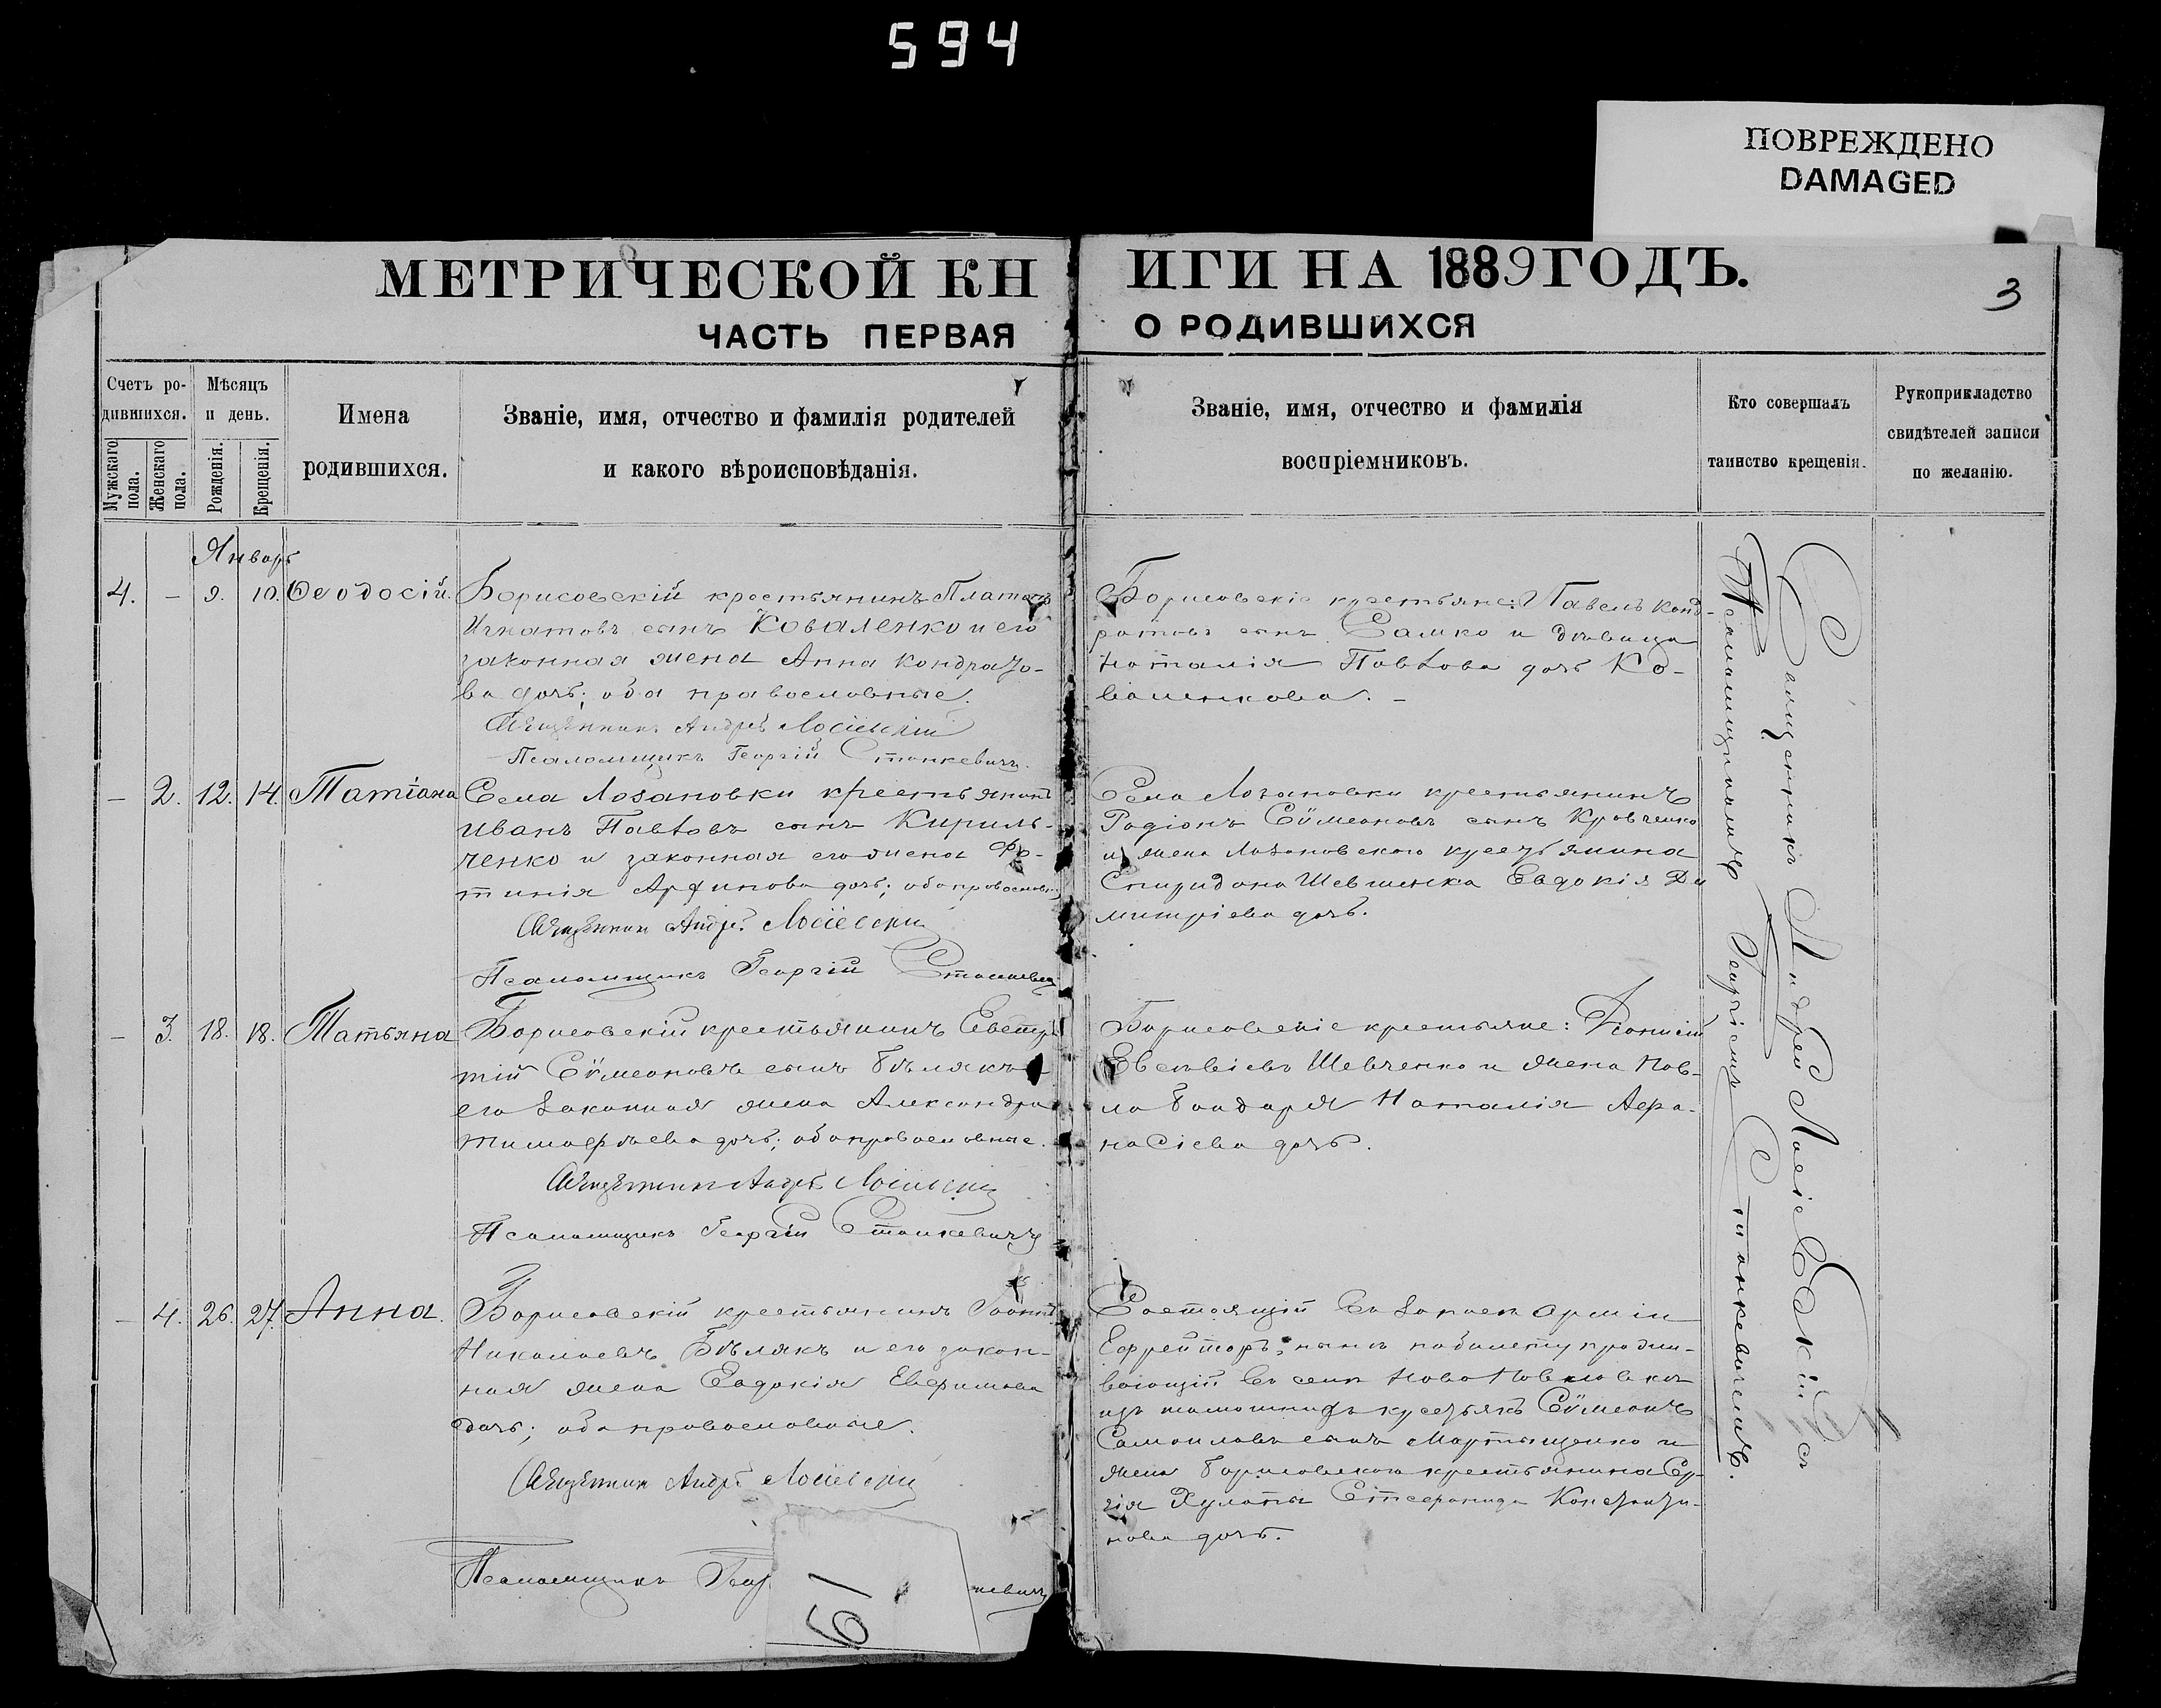 594
ПОВРЕЖДЕНО
DAMAGED
МЕТРИЧЕСКОЙ КНИГИ НА 1889 ГОДЪ.
3
ЧАСТЬ ПЕРВАЯ О РОДИВШИХСЯ
Счетъ ро-
дившихся.
Мужскаго пола.
Женскаго пола.
Мѣсяцъ
и день.
Рожденія.
Крещенія.
Имена
родившихся.
Званіе, имя, отчество и фамилія родителей
и какого вѣроисповѣданія.
Званіе, имя, отчество и фамилія
воспріемниковъ.
Кто совершалъ
таинство крещенія.
Рукоприкладство
свидѣтелей записи
по желанію.
Январь
4. – 9. 10. Ѳеодосій.
Борисовскій крестьянинъ Платонъ
Игнатовъ сынъ Коваленко и его
законная жена Анна Кондрато-
ва дочь; оба православные.
Священникъ Андрей Лосіевскій
Псаломщикъ Георгій Станкевичъ.
Борисовскіе крестьяне: Павелъ Конд-
ратовъ сынъ Самко и дѣвица
Наталія Павлова дочь Ко-
валенкова. –
– 2. 12. 14. Татіана
Села Лозановки крестьянинъ
Иванъ Павловъ сынъ Кириль-
ченко и законная его жена Фо-
тинія дочь; оба православн.
Священникъ Андрей Лосіевскій
Псаломщикъ Георгій Станкевичъ
Села Лозановки крестьянинъ
Родіонъ Сѵмеоновъ сынъ Кравченко
и жена Лозановскаго крестьянина
Спиридона Шевченка Евдокія Ди
митріева дочь.
– 3. 18. 18. Татьяна
Борисовскій крестьянинъ Евста-
тій Сѵмеоновъ сынъ Бѣлякъ и
его законная жена Александра
Тимоѳеева дочь; оба православные.
Священникъ Андрей Лосіевскій
Псаломщикъ Георгій Станкевичъ
Борисовскіе крестьяне: Діонисій
Евсевіевъ Шевченко и жена Пав-
ла Бондаря Наталія Аѳа-
насіева дочь.
– 4. 26. 27. Анна.
Борисовскій крестьянинъ
Николаевъ Бѣлякъ и его закон-
ная жена Евдокія Евфимова
дочь; оба православные.
Священникъ Андрей Лосіевскій
Псаломщикъ Геор кевичъ
Состоящій въ запасѣ арміи
Ефрейторъ, нынѣ по билету прожи-
вающій въ селѣ Ново Павловкѣ
изъ тамошнихъ крестьянъ Сѵмеонъ
Самоиловъ сынъ Мартыщенко и
жена Борисовскаго крестьянина Сер-
гія Стефанида Константи-
нова дочь.
Священникъ Андрей Лосіевскій съ
Псаломщикомъ Георгіемъ Станкевичемъ.
61